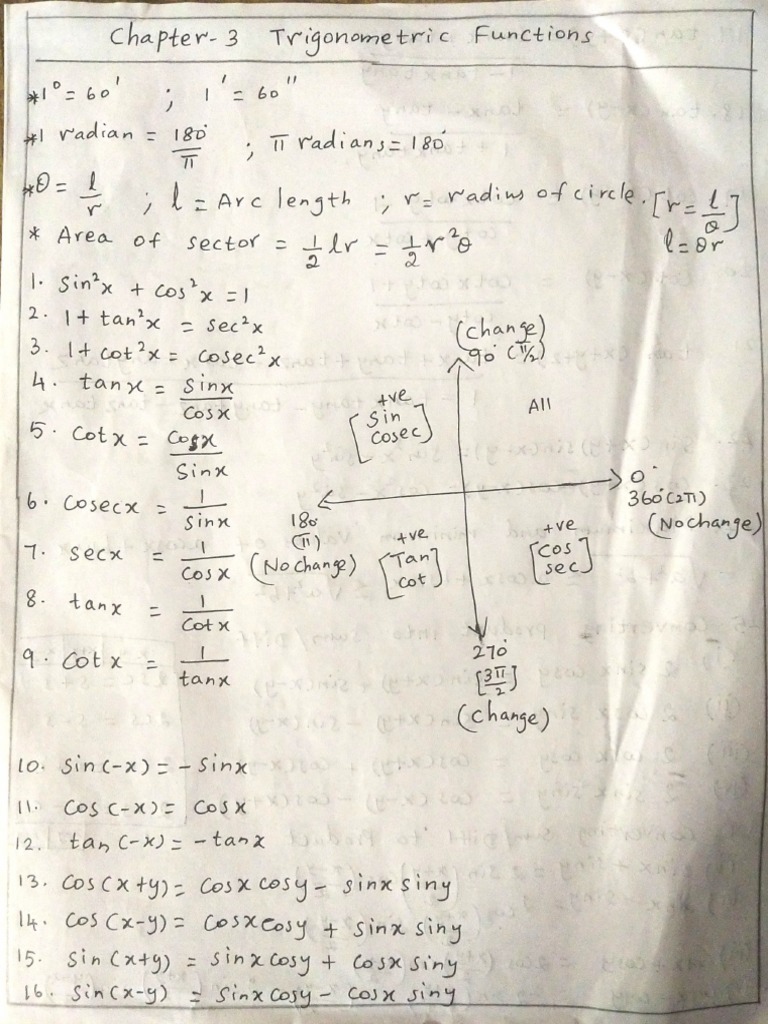 Chapter-3 Trigonometric Functions
*1° = 60' ; 1' = 60"
*1 radian = 180°/π ; π radians = 180°
*θ = l/r ; l = Arc length ; r = radius of circle. [r = l/θ]
l = θr
* Area of sector = 1/2 lr = 1/2 r²θ
1. sin²x + cos²x = 1
2. 1 + tan²x = sec²x
3. 1 + cot²x = cosec²x
4. tanx = sinx/cosx
5. cotx = cosx/sinx
6. cosecx = 1/sinx
7. secx = 1/cosx
8. tanx = 1/cotx
9. cotx = 1/tanx
(change)
90° (π/2)
+ve
[Sin
cosec]
All
0°
360° (2π)
(No change)
180°
(π)
(No change)
+ve
[Tan
cot]
+ve
[cos
sec]
270°
[3π/2]
(change)
10. sin(-x) = -sinx
11. cos(-x) = cosx
12. tan(-x) = -tanx
13. cos(x+y) = cosx cosy - sinx siny
14. cos(x-y) = cosx cosy + sinx siny
15. sin(x+y) = sinx cosy + cosx siny
16. sin(x-y) = sinx cosy - cosx siny